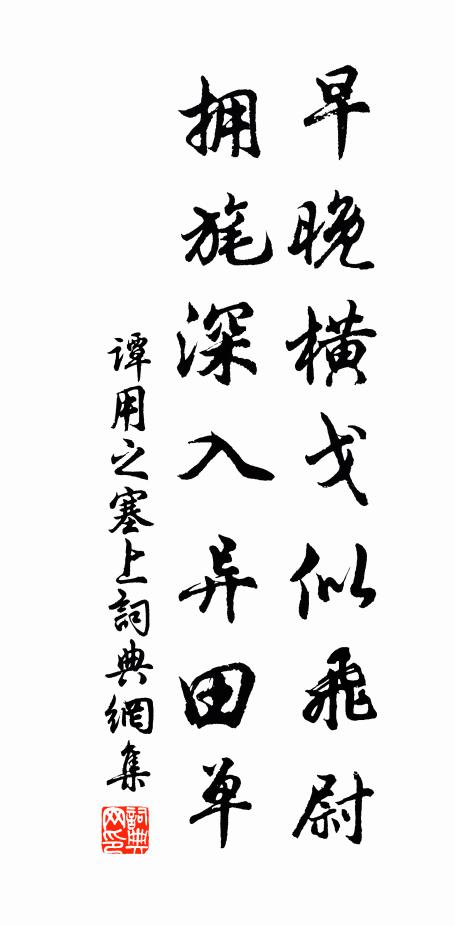 早晚横戈似飛尉
拥旄深入异田单
譚用之塞上詞典網集
詞典网印